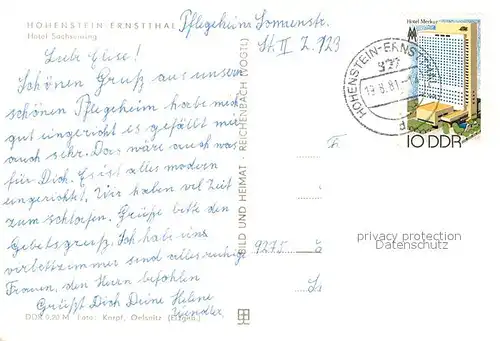 HOHENSTEIN-ERNSTTHAL
Hotel Sachsenring
Pflegeheim Sonnenstr.
St. II Z. 923
Liebe Elise!
Schönen Gruß aus unserm
schönen Pflegeheim habe mich
gut eingericht es gefällt mir
auch sehr. Das wäre auch was
für Dich. Es ist alles modern
eingerichtet. Wir haben viel Zeit
zum schlafen. Grüße bitte den
Gebetsgruß. Ich habe ein
vorbettzimmer sind alles ruhige
Frauen, den Herrn befohlen
Grüßt Dich Deine Helene
DDR 0,20 M Foto: Karpf, Oelsnitz (Erzgeb.)
BILD UND HEIMAT · REICHENBACH (VOGTL)
HOHENSTEIN-ERNSTTHAL
927
19.8.81
a
Hotel Merkur
10 DDR
F
9275
privacy protection
Datenschutz